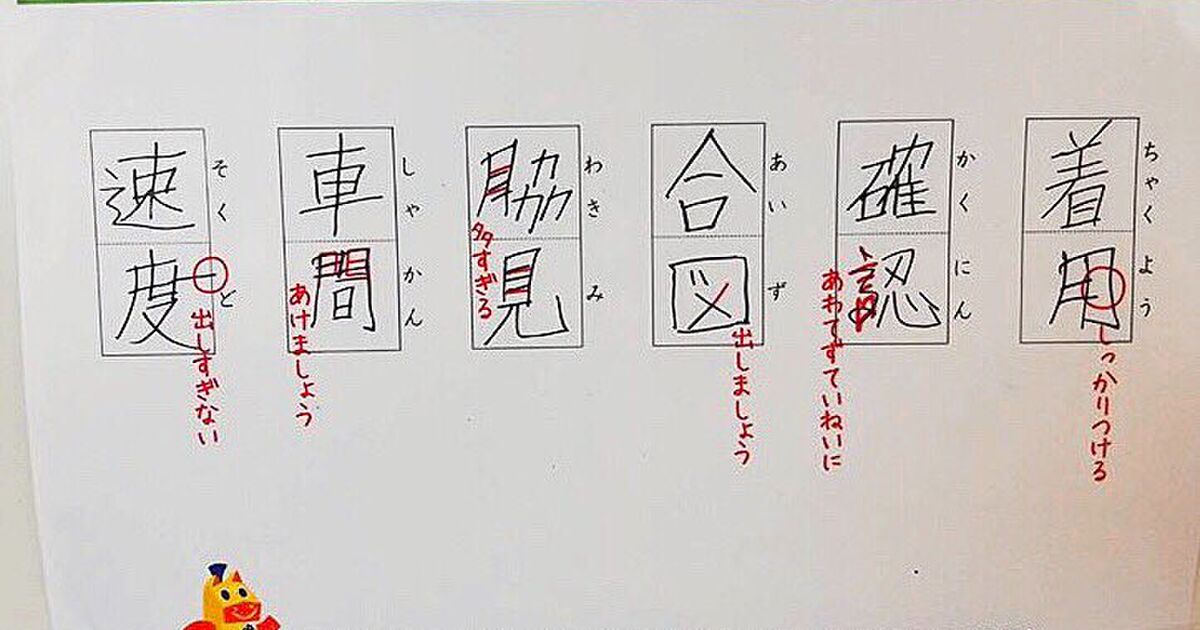 着用
ちゃくよう
しっかりつける
確認
かくにん
あわてずていねいに
合図
あいず
出しましょう
脇見
わきみ
多すぎる
車間
しゃかん
あけましょう
速度
そくど
出しすぎない